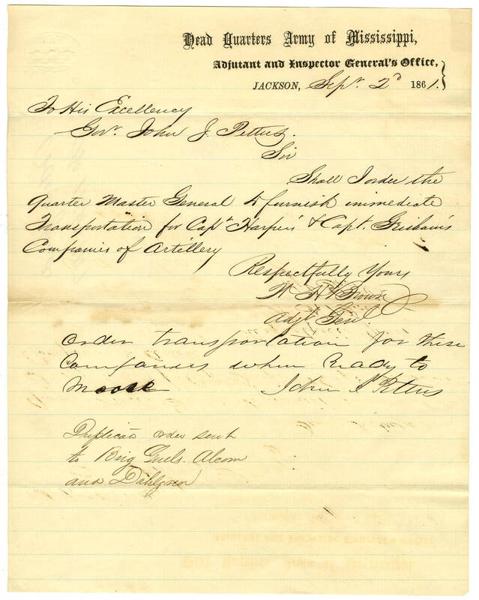 Head Quarters Army of Mississippi,
Adjutant and Inspector General's Office,
JACKSON, Sept. 2d 1861.
To His Excellency
Gov. John J. Pettus.
Sir
Shall I order the
Quarter Master General to furnish immediate
Transportation for Capt Harper's & Capt. Grisham's
Companies of Artillery
Respectfully Yours
W. H. Brown
Adjt Genl
Order transportation for these
Companies when ready to
move John J Pettus
Duplicate order sent
to Brig Genls. Alcorn
and Dahlgren